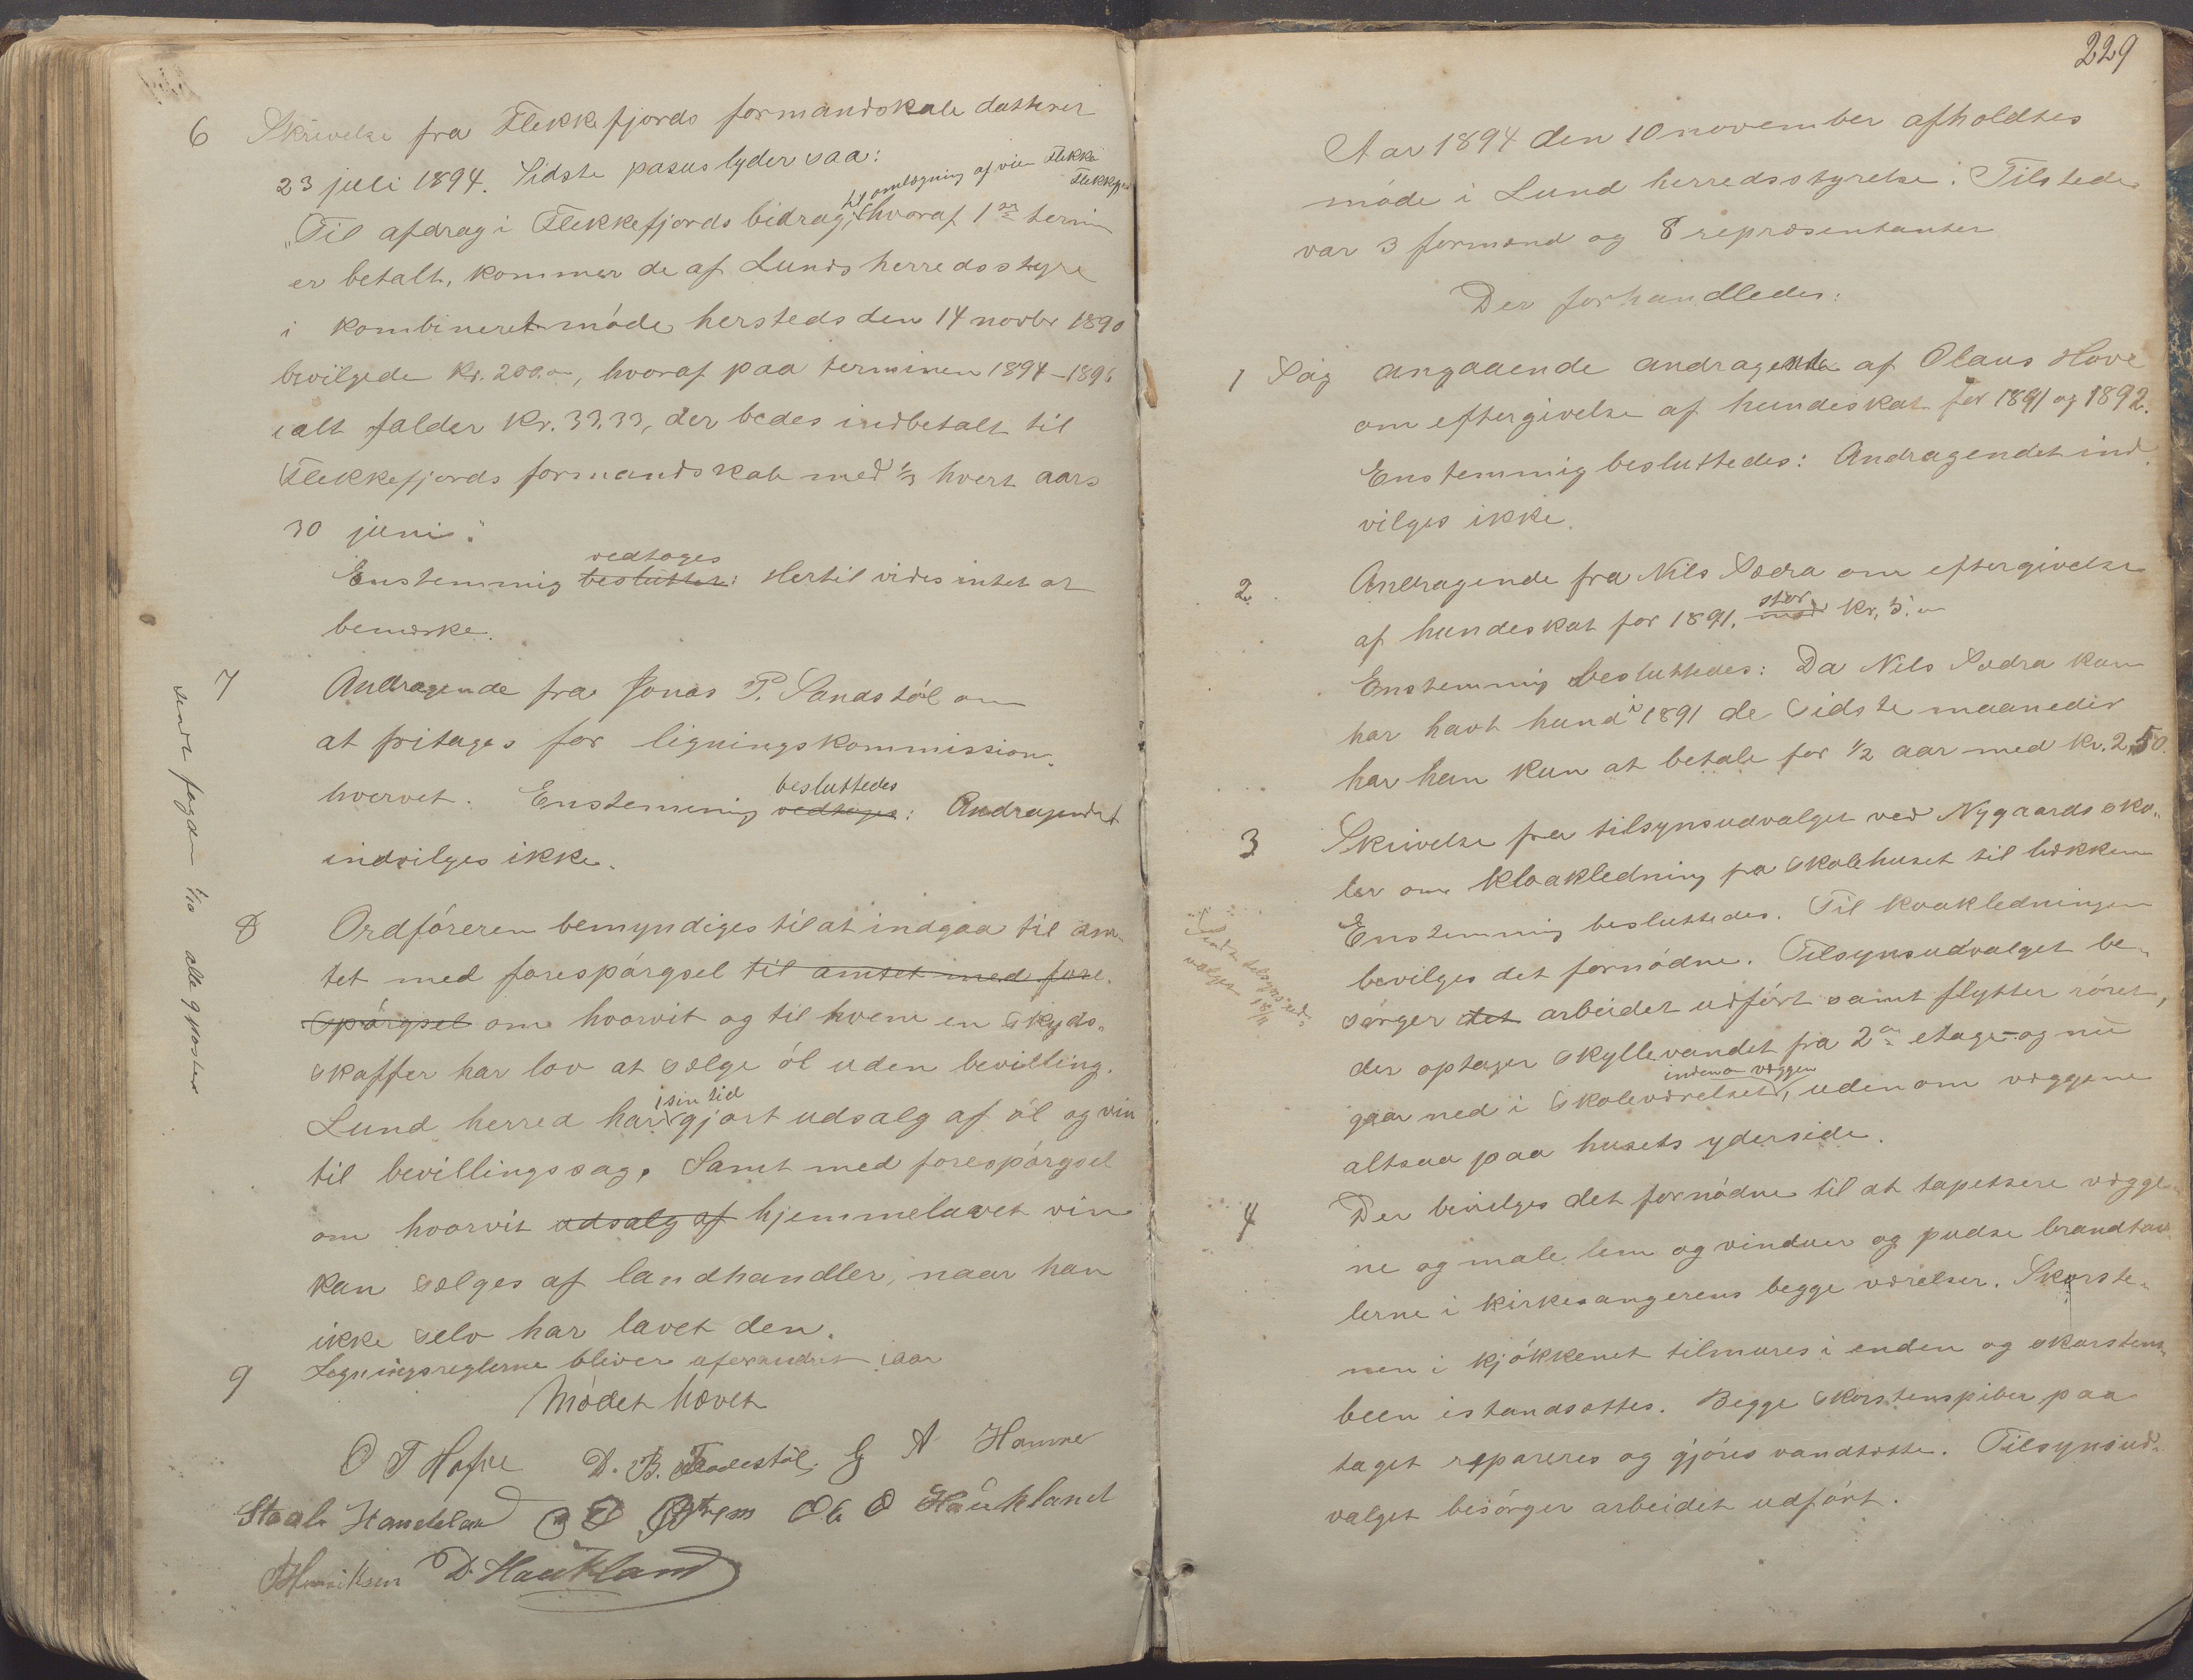 6 Skrivelse fra Flekkefjords formandskab datteret
23 juli 1894. Sidste pasus lyder saa:
til omlægning af vien Flekke
Flekkefj
„Til afdrag i Flekkefjords bidrag, hvoraf 1ste termin
er betalt, kommer de af Lunds herredsstyre
i kombineret møde hersteds den 14 novbr 1890
bevilgede Kr. 200.00, hvoraf paa terminen 1894-1896
ialt falder Kr. 33,33, der bedes indbetalt til
Flekkefjords formandskab med ⅓ hvert aars
30 juni."
vedtoges
Enstemmig besluttet: Hertil vides intet at
bemærke.
7 Andragende fra Jonas P. Sandstøl om
at fritages for ligningskommission-
besluttedes
hvervet. Enstemmig vedtoges: Andragendet
indvilges ikke.
8 Ordføreren bemyndiges til at indgaa til am-
tet med forespørgsel til amtet med fore-
spørgsel om hvorvit og til hvem en skyds-
skaffer har lov at sælge øl uden bevilling.
i sin tid
Lund herred har gjort udsalg af øl og vin
til bevillingssag. Samt med forespørgsel
om hvorvit udsalg af hjemmelavet vin
kan sælges af landhandler, naar han
ikke selv har lavet den.
9 Ligningsreglerne bliver uforandret iaar
Mødet hævet
O T Hofne D. B. Flodestøl. G A Hamre
Staale Handeland O O Østrem Ole O Haukland
Henriksen D. Haukland
sendt fogden alle 9 poster
229
Aar 1894 den 10 november afholdtes
møde i Lund herredsstyrelse. Tilstede
var 3 formænd og 8 repræsentanter
Der forhandledes:
1 Sag angaaende andragende af Olaus Hove
om eftergivelse af hundeskat for 1891 og 1892.
Enstemmig besluttedes: Andragendet ind-
vilges ikke.
2. Andragende fra Nils Sædra om eftergivelse
stor
af hundeskat for 1891, med Kr. 5.00
Enstemmig besluttedes: Da Nils Sædra kun
har havt hund i 1891 de sidste maaneder
har han kun at betale for ½ aar med Kr. 2,50.
3 Skrivelse fra tilsynsudvalget ved Nygaards sko-
ler om kloakledning fra skolehuset til bækken
Enstemmig besluttedes. Til kloakledningen
bevilges det fornødne. Tilsynsudvalget be-
sørger det arbeidet udført samt flytter røret,
der optager skyllevandet fra 2den etage og nu
indenom væggen
gaar ned i skoleværelset, udenom væggene
altsaa paa husets yderside.
Sendt tilsynsud-
valget 18/11
4 Der bevilges det fornødne til at tapetsere vægge-
ne og male lem og vinduer og pudse brandtav-
lerne i kirkesangerens begge værelser. Skorste-
nen i kjøkkenet tilmures i enden og skorstens-
been istandsættes. Begge skorstenspiber paa
taget repareres og gjøres vandtætte. Tilsynsud-
valget besørger arbeidet udført.